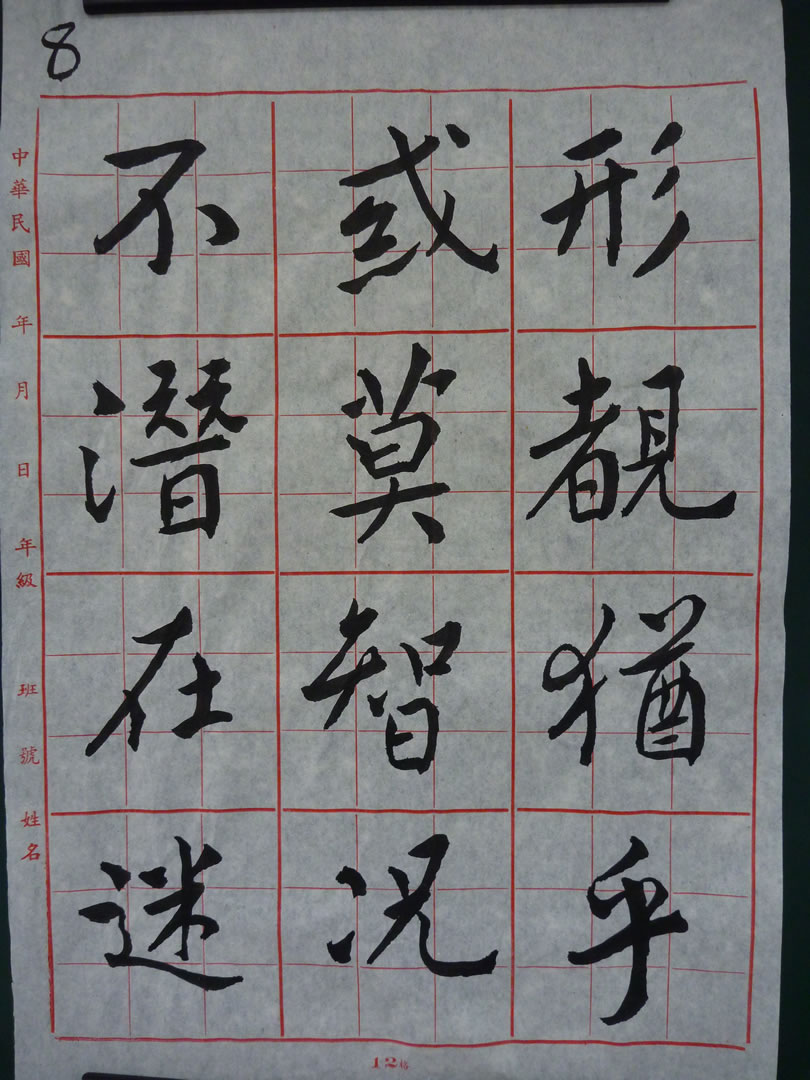 8
不惑形
潛莫覩
在智猶
迷况乎
中華民國 年 月 日 年級 班 號 姓名
12格